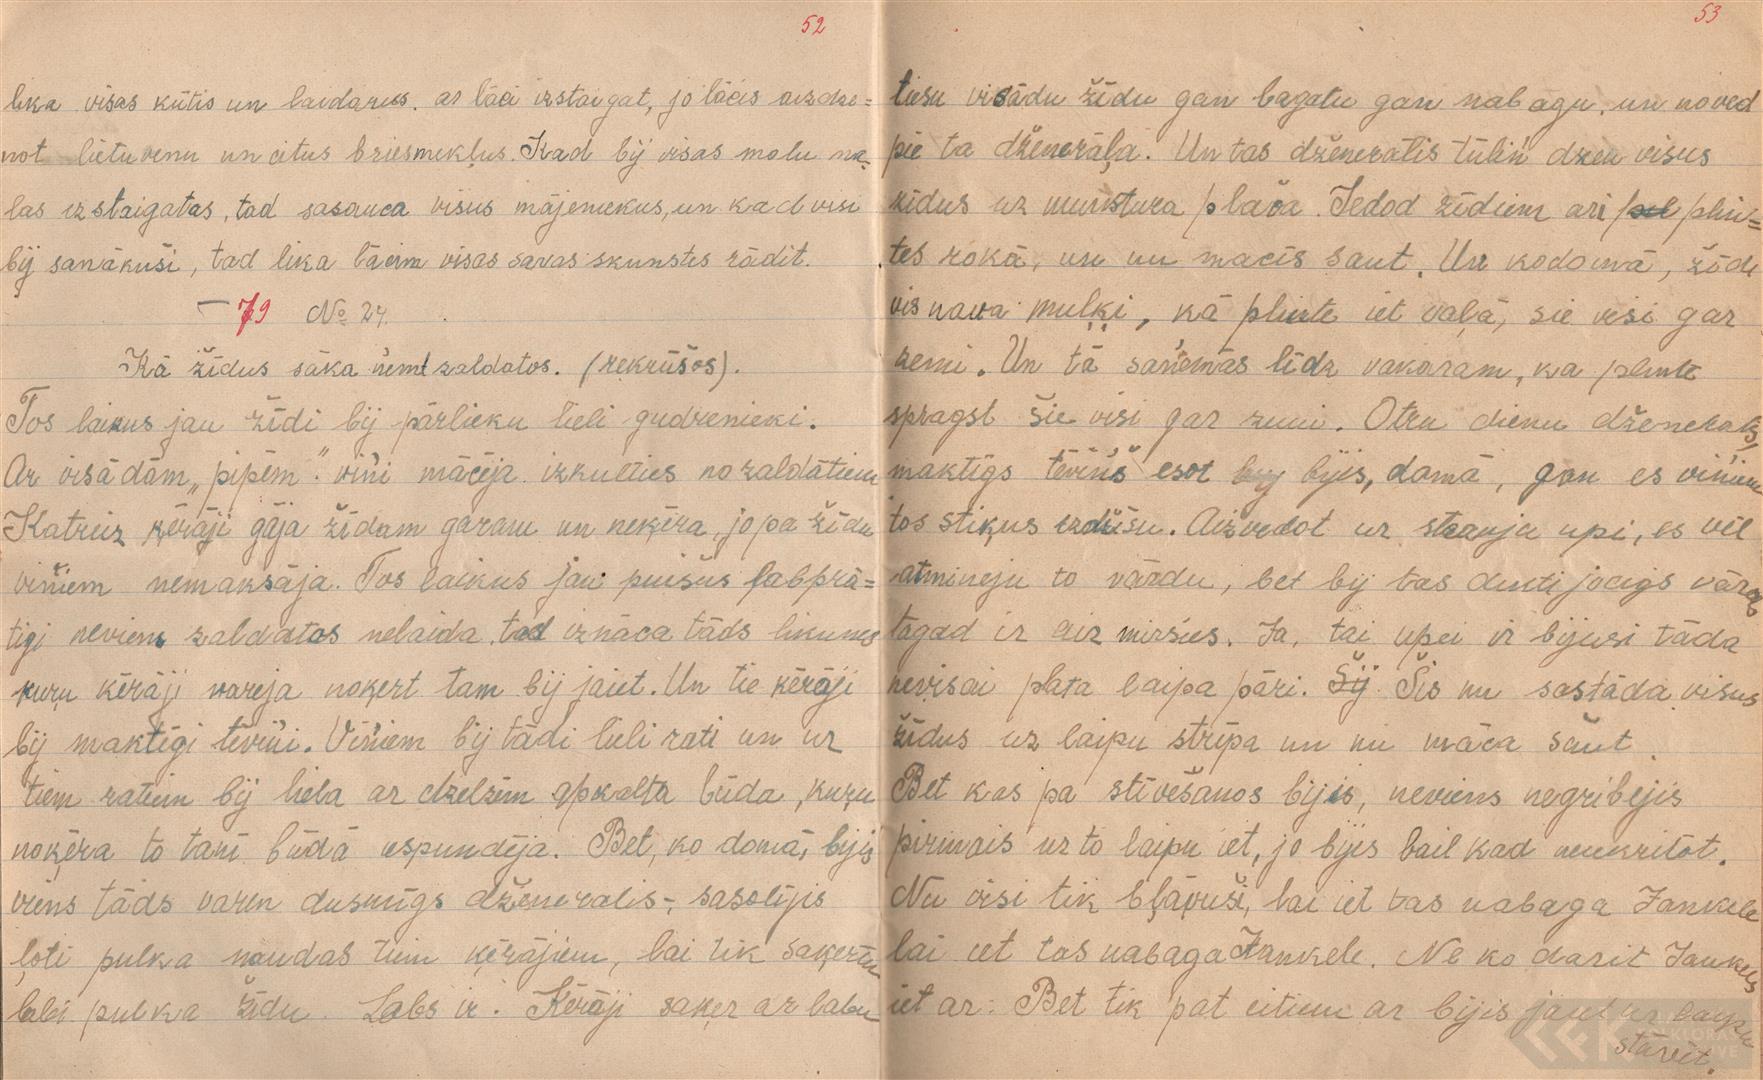 52
lika visas kūtis un laidarus. ar lāci izstaigat, jo lācis aizdze=
not lietuvenu un citus briesmekļus. Kad bij visas malu ma=
las izstaigatas, tad sasauca visus mājeniekus, un kad visi
bij sanākuši, tad lika lācim visas savas skunstes rādit.
79 No 24.
Kā žīdus sāka ņemt zaldatos. (rekrūšos).
Tos laikus jau žīdi bij pārlieku lieli gudrenieki.
Ar visādām „pipēm“ viņi mācēja izkulties no zaldātiem
Katreiz ķērāji gāja žīdam garam un neķēra, jo pa žīdu
viņiem nemaksāja. Tos laikus jau puišus labprā=
tigi neviens zaldatos nelaida, tad iznāca tāds likumes
kuŗu ķērāji vareja noķert tam bij jaiet. Un tie ķērāji
bij maktigi tēviņi. Viņiem bij tādi lieli rati un uz
tiem ratiem bij liela ar dzelzim apkalta būda, kuŗu
noķēra to tani būdā espundēja. Bet, ko domā, bijis
viens tāds varen dusmīgs dženeralis, sasolijis
ļoti pulka naudas tiem ķērājiem, lai tik saķertu
labi pulka žīdu. Labs ir. Ķērāji saķer ar labu
53
tiesu visādu žīdu gan bagatu gan nabagu, un noved
pie ta dženerāļa. Un tas dženeralis tūliņ dzen visus
žīdus uz munstura plača. Iedod žīdiem ari plin=
tes rokā, un nu macīs šaut. Un kodomā, žīdi
vis nava muļķi, kā plinte iet vaļā, šie visi gar
zemi. Un tā saņēmās līdz vakaram, ka plinte
spragst šie visi gar zemi. Otru dienu dženeralis,
maktīgs tēviņš esot bijis, domā, gan es viņiem
tos stiķus izdzīšu. Aizvedot uz straŭja upi, es vēl
atmineju to vārdu, bet bij tas deuti jocigs vārds
tagad ir aizmirsies. Ja, tai upei ir bijusi tāda
nevisai plata laipa pāri. Šis nu sastāda visus
žīdus uz laipu strīpa un nu māca šaut.
Bet kas pa stīvēšanos bijis, neviens negribejis
pirmais uz to laipu iet, jo bijis bail kad neiekritot.
Nu visi tik bļāvuši, lai iet tas nabaga Jankele
lai iet tas nabaga Jankele. Ne ko darit Jankels
iet ar. Bet tik pat citiem ar bijis jaiet uz laipu
stāvēt.